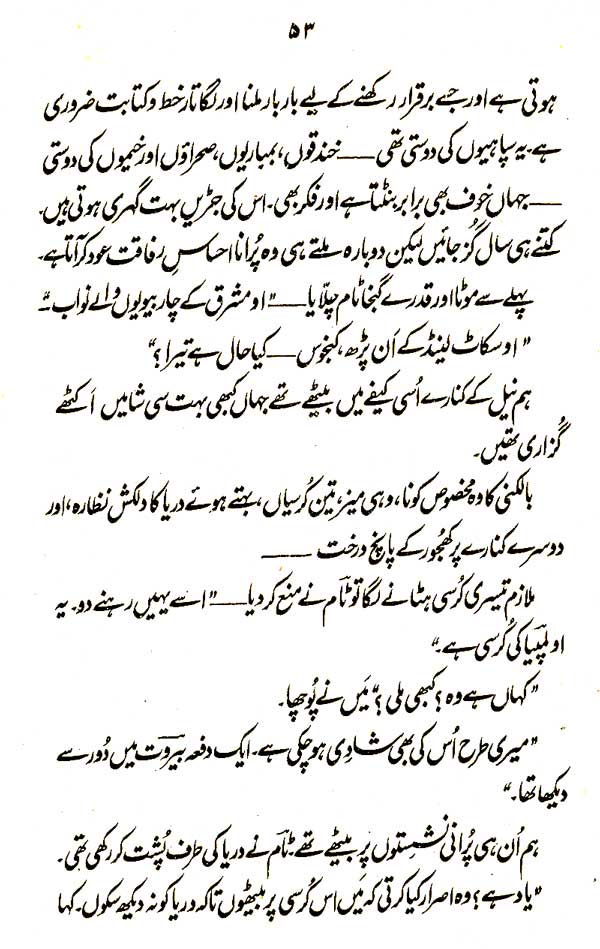 ۵۳
ہوتی ہے اور جسے برقرار رکھنے کے لیے بار بار ملنا اور لگاتار خط و کتابت ضروری
ہے۔ یہ سپاہیوں کی دوستی تھی ــــ خندقوں، بمباریوں، صحراؤں اور خیموں کی دوستی
ــــ جہاں خوف بھی برابر بنٹتا ہے اور فکر بھی۔ اس کی جڑیں بہت گہری ہوتی ہیں۔
کتنے ہی سال گزر جائیں لیکن دوبارہ ملتے ہی وہ پُرانا احساسِ رفاقت عود کر آتا ہے۔
پہلے سے موٹا اور قدرے گنجا ٹام چلّایا ــــ "او مشرق کے چار بیویوں والے نواب۔"
"او سکاٹ لینڈ کے اَن پڑھ، کنجوس ــــ کیا حال ہے تیرا؟"
ہم نیل کے کنارے اُسی کیفے میں بیٹھے تھے جہاں کبھی بہت سی شامیں اکٹھے
گُزاری تھیں۔
بالکنی کا وہ مخصوص کونا، وہی میز، تین کُرسیاں، بہتے ہوئے دریا کا دلکش نظارہ، اور
دوسرے کنارے پر کھجور کے پانچ درخت ــــ
ملازم تیسری کُرسی ہٹانے لگا تو ٹام نے منع کر دیا ــــ "اسے یہیں رہنے دو۔ یہ
اولمپیا کی کُرسی ہے۔"
"کہاں ہے وہ؟ کبھی ملی؟" مَیں نے پُوچھا۔
"میری طرح اُس کی بھی شادی ہو چکی ہے۔ ایک دفعہ بیروت میں دُور سے
دیکھا تھا۔"
ہم اُن ہی پُرانی نشستوں پر بیٹھے تھے۔ ٹام نے دریا کی طرف پُشت کر رکھی تھی۔
"یاد ہے؟ وہ اصرار کیا کرتی کہ مَیں اس کُرسی پر بیٹھوں تاکہ دریا کو نہ دیکھ سکوں۔ کہا